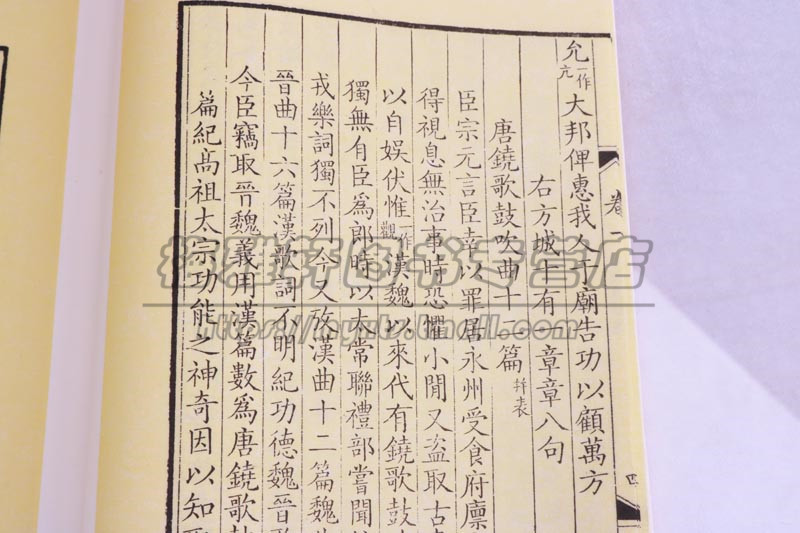 卷一
四
允一作亢大邦俾惠我人于廟告功以顧萬方
右方城十有一章章八句
唐鐃歌鼓吹曲十二篇并表
臣宗元言臣幸以罪居永州受食府廩
得視息無治事時恐懼小閒又盗取古
以自娱伏惟一作觀漢魏以來代有鐃歌鼓
獨無有臣爲郎時以太常聯禮部嘗聞
戎樂詞獨不列今又攷漢曲十二篇魏
晉曲十六篇漢歌詞不明紀功德魏晉
今臣竊取晉魏義用漢篇數爲唐鐃歌
篇紀高祖太宗功能之神奇因以知
图书专营店